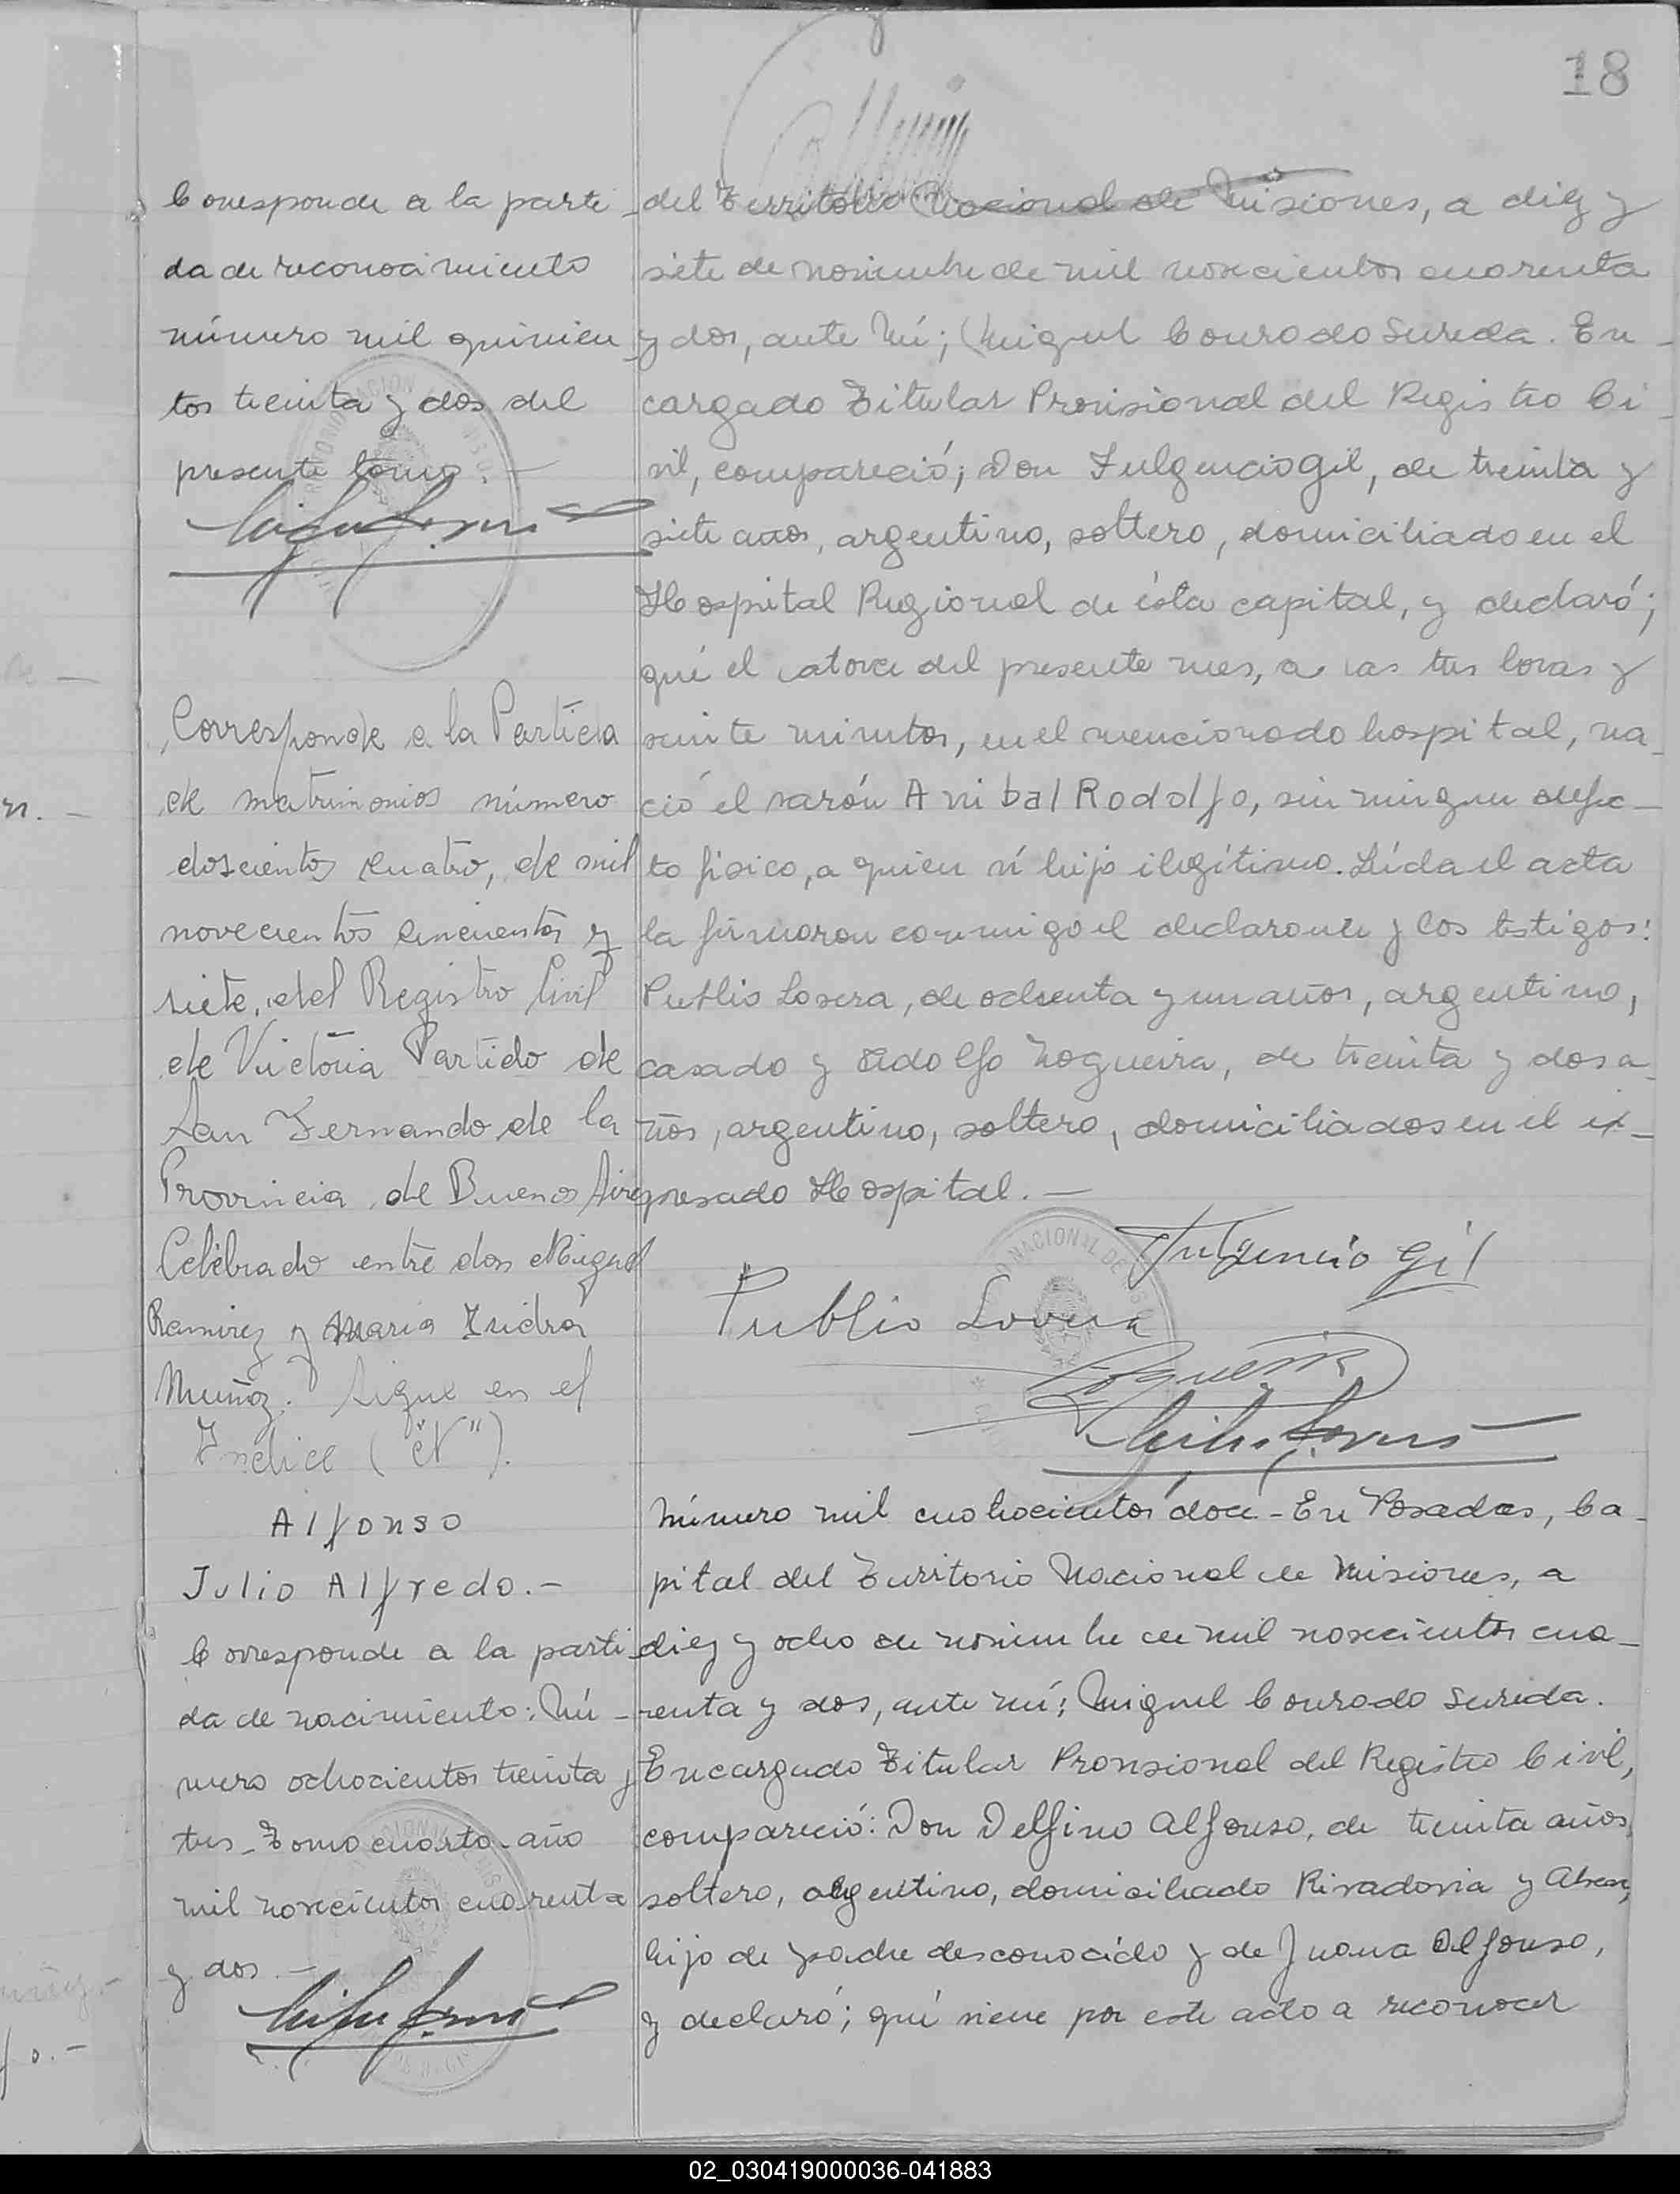 18
Corresponde a la parti-
da de reconocimiento
número mil quinien-
tos treinta y dos del
presente tomo.-
Corresponde a la Partida
de matrimonios número
doscientos cuatro, de mil
novecientos cincuenta y
siete, del Registro Civil
de Victoria Partido de
San Fernando de la
Provincia de Buenos Aires
Celebrado entre don Miguel
Ramirez y Maria Isidra
Muñoz. Sigue en el
Indice ("N").
Alfonso
Julio Alfredo.-
Corresponde a la parti-
da de nacimiento: Nú-
mero ochocientos treinta y
tres - Tomo cuarto - año
mil novecientos cuarenta
y dos.-
del Territorio Nacional de Misiones, a diez y
siete de noviembre de mil novecientos cuarenta
y dos, ante Mí; Miguel Conrado Sureda. En-
cargado Titular Provisional del Registro Ci-
vil, compareció; Don Fulgencio Gil, de treinta y
siete años, argentino, soltero, domiciliado en el
Hospital Regional de ésta capital, y declaró;
qué el catorce del presente mes, a las tres horas y
veinte minutos, en el mencionado hospital, na-
ció el varón Anibal Rodolfo, sin ningun defec-
to físico, a quien ví hijo ilegítimo. Leída el acta
la firmaron conmigo el declarante y los testigos:
Publio Lovera, de ochenta y un años, argentino,
casado y Adolfo Nogueira, de treinta y dos a-
ños, argentino, soltero, domiciliados en el ex-
presado Hospital.-
Fulgencio Gil
Publio Lovera
Número mil cuatrocientos doce - En Posadas, Ca-
pital del Territorio Nacional de Misiones, a
diez y ocho de noviembre de mil novecientos cua-
renta y dos, ante mí; Miguel Conrado Sureda.
Encargado Titular Provisional del Registro Civil,
compareció: Don Delfino Alfonso, de treinta años,
soltero, argentino, domiciliado Rivadavia y
hijo de padre desconocido y de Juana Alfonso,
y declaró; qué viene por este acto a reconocer
02_030419000036-041883